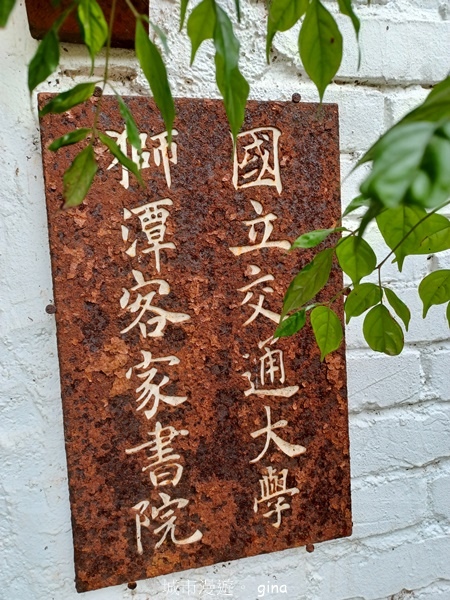 國立交通大學
獅潭客家書院
城市漫遊。 gina